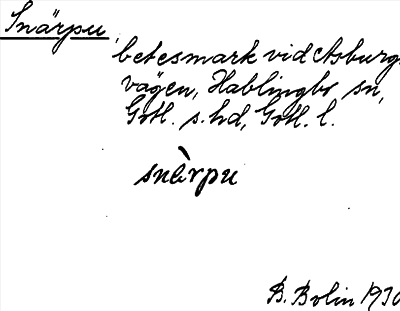 Snärpu,
betesmark vid Asburgs
vägen, Hablingbo sn,
Gotl. s. hd, Gotl. l.
snèrpu
B. Bolin 1930